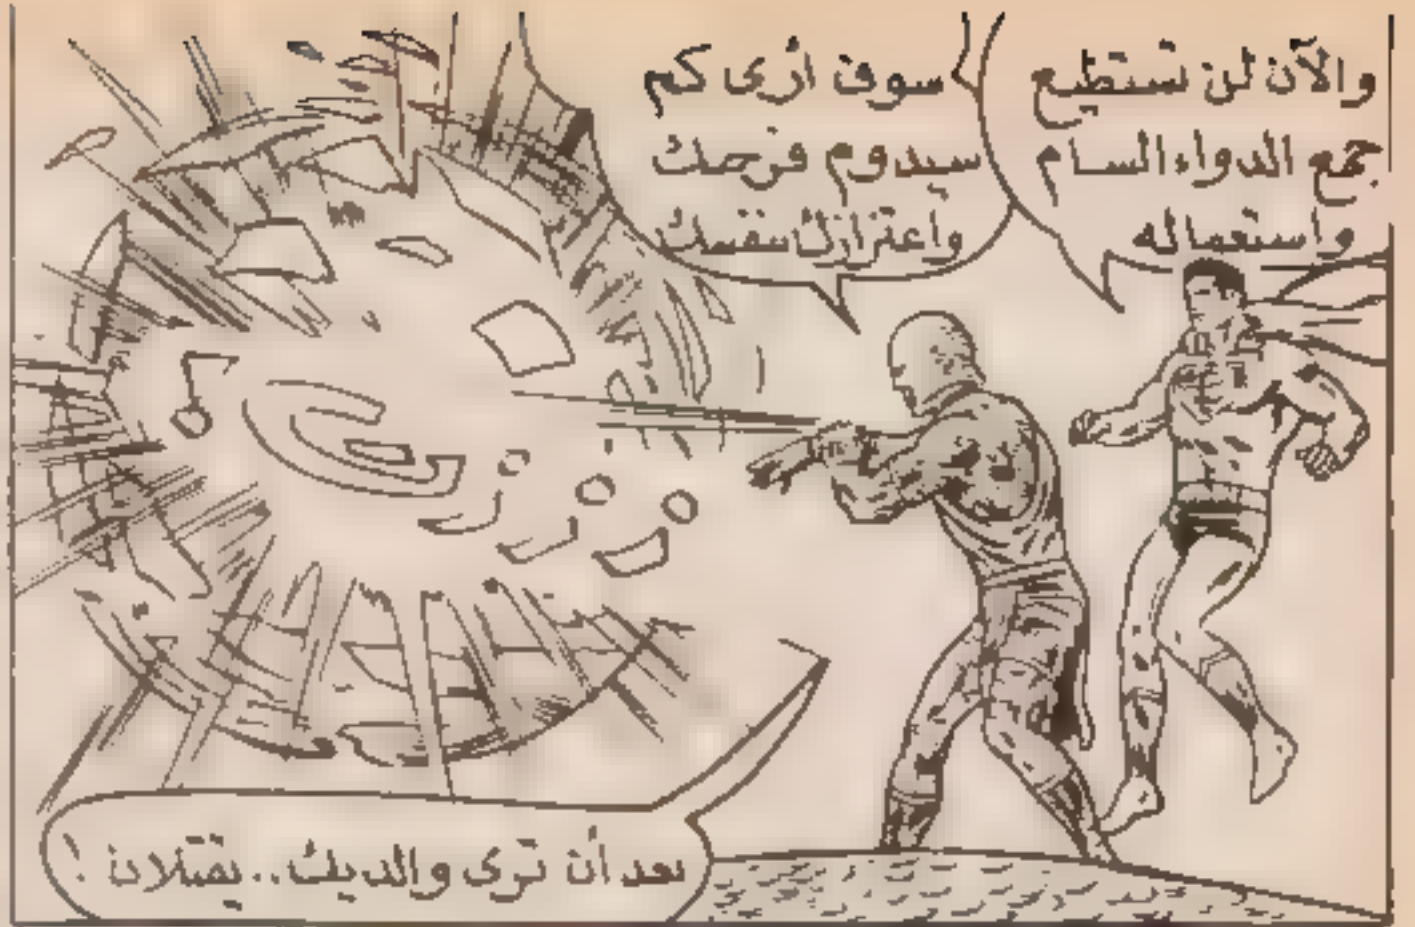 والآن لن تستطيع
جمع الدواء السام
واستعماله
سوف أرى كم
سيدوم فرحك
واعتزازك بنفسك
بعد أن ترى والديك.. يقتلان !